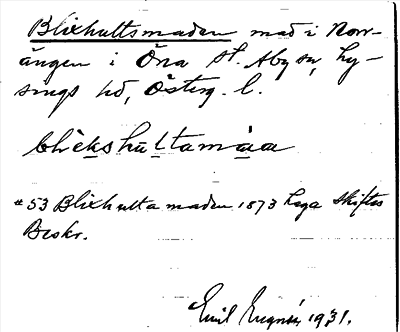 Blixhultsmaden mad i Norr-
ängen i Öna St. Aby sn, Ly-
sings hd, Österg. l.
blìekshultamáaa
#53 Blixhulta maden 1873 Laga Skiftes
Beskr.
Emil 1931.